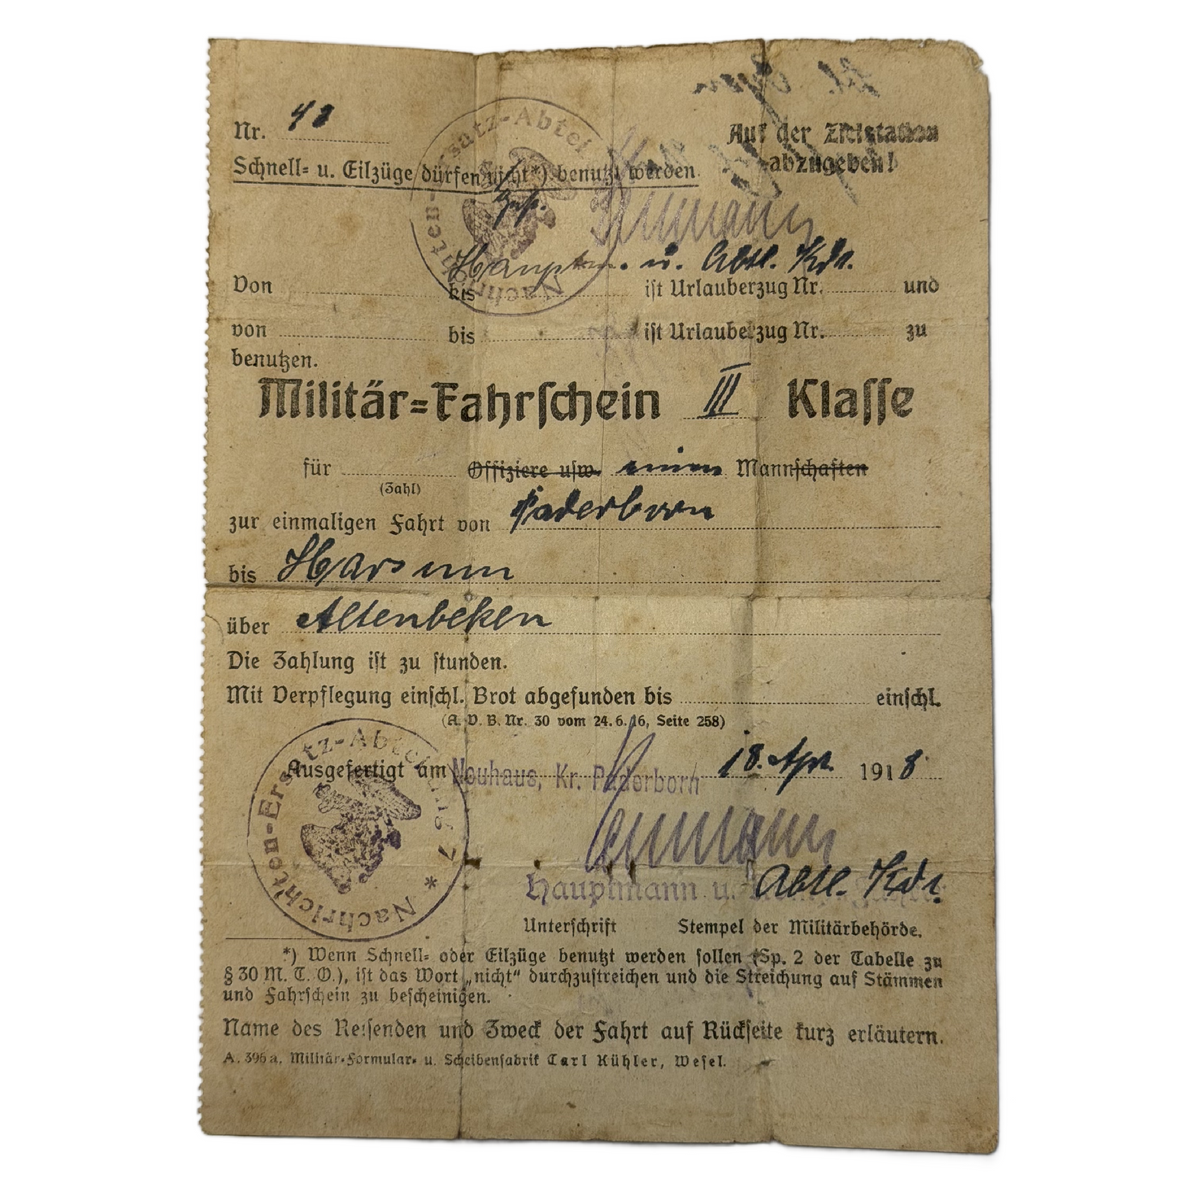 Nr. 48
Auf der Zielstation abzugeben!
Schnell= u. Eilzüge dürfen nicht*) benutzt werden.
Nachrichten-Ersatz-Abteil
Hauptm. u. Abtl. Kdr.
Von bis ist Urlauberzug Nr. und
von bis ist Urlauberzug Nr. zu
benutzen.
Militär=Fahrschein III Klasse
für Offiziere usw. einen Mannschaften
(Zahl)
zur einmaligen Fahrt von Paderborn
bis Harsum
über Altenbeken
Die Zahlung ist zu stunden.
Mit Verpflegung einschl. Brot abgefunden bis einschl.
(A. V. B. Nr. 30 vom 24. 6. 16, Seite 258)
Ausgefertigt am Neuhaus, Kr. Paderborn 18. Apr. 1918
Nachrichten-Ersatz-Abteilung 7 *
Hauptmann u. Abtl. Kdr.
Unterschrift Stempel der Militärbehörde.
*) Wenn Schnell= oder Eilzüge benutzt werden sollen (Sp. 2 der Tabelle zu
§ 30 M. T. O.), ist das Wort „nicht“ durchzustreichen und die Streichung auf Stämmen
und Fahrschein zu bescheinigen.
Name des Reisenden und Zweck der Fahrt auf Rückseite kurz erläutern.
A. 396a. Militär=Formular= u. Scheibenfabrik Carl Kühler, Wesel.